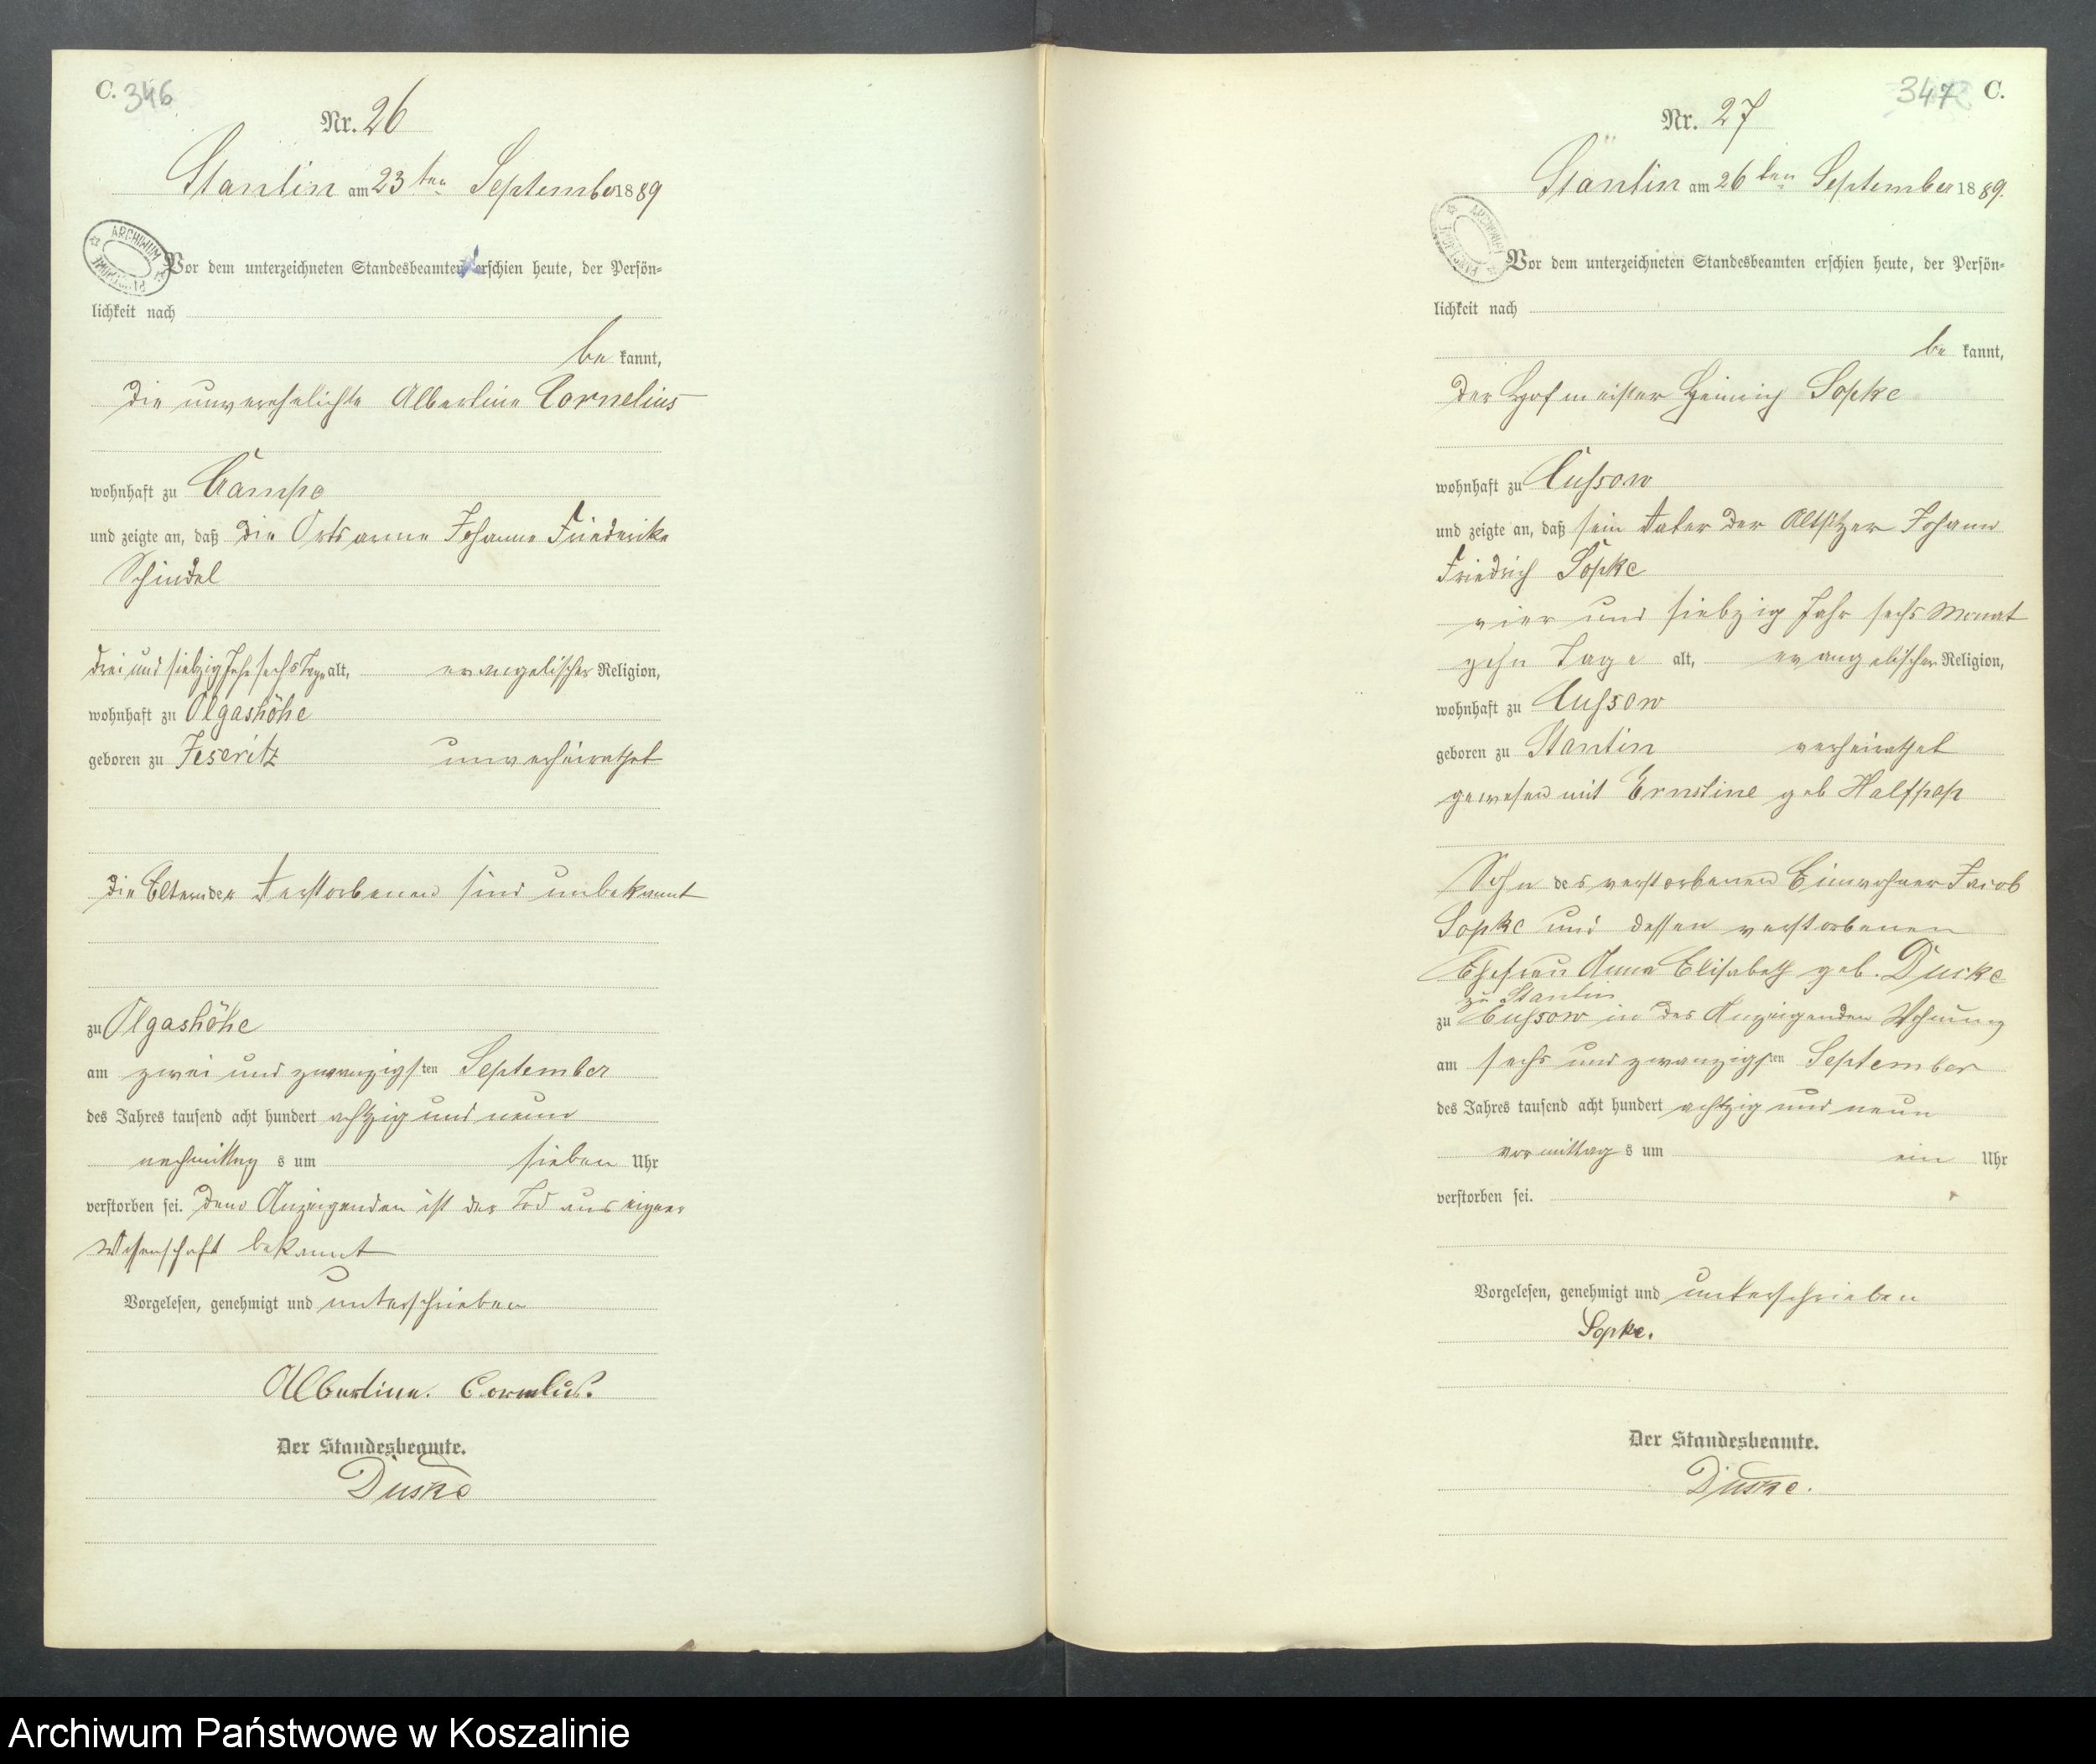 C. 346
Nr. 26
Stantin am 23 ten September 1889
ARCHIWUM PAŃSTWOWE
Vor dem unterzeichneten Standesbeamten erschien heute, der Persön=
lichkeit nach
be kannt,
die unverehelichte Albertine Cornelius
wohnhaft zu Campe
und zeigte an, daß die Ortsarme Johanne Friederike
Schindel
drei und siebzig Jahr sechs Tage alt, evangelischer Religion,
wohnhaft zu Olgashöhe
geboren zu Jeseritz unverheirathet
die Eltern der Verstorbenen sind unbekannt
zu Olgashöhe
am zwei und zwanzigsten September
des Jahres tausend acht hundert achtzig und neun
nachmittag s um sieben Uhr
verstorben sei. Dem Anzeigenden ist der Tod aus eigener
Wissenschaft bekannt
Vorgelesen, genehmigt und unterschrieben
Albertine. Cornelius.
Der Standesbeamte.
Duske
347 C.
Nr. 27
Stantin am 26 ten September 1889.
Vor dem unterzeichneten Standesbeamten erschien heute, der Persön=
lichkeit nach
be kannt,
der Hofmeister Heinrich Sopke
wohnhaft zu Cussow
und zeigte an, daß sein Vater der Altsitzer Johann
Friedrich Sopke
vier und siebzig Jahr sechs Monat
zehn Tage alt, evangelischer Religion,
wohnhaft zu Cussow
geboren zu Stantin verheirathet
gewesen mit Ernstine geb Halfpap
Sohn des verstorbenen Einwohner Jacob
Sopke und dessen verstorbenen
Ehefrau Anna Elisabeth geb. Duske
zu Stantin
zu Cussow in des Anzeigenden Wohnung
am sechs und zwanzigsten September
des Jahres tausend acht hundert achtzig und neun
vormittag s um ein Uhr
verstorben sei.
Vorgelesen, genehmigt und unterschrieben
Sopke.
Der Standesbeamte.
Duske.
Archiwum Państwowe w Koszalinie